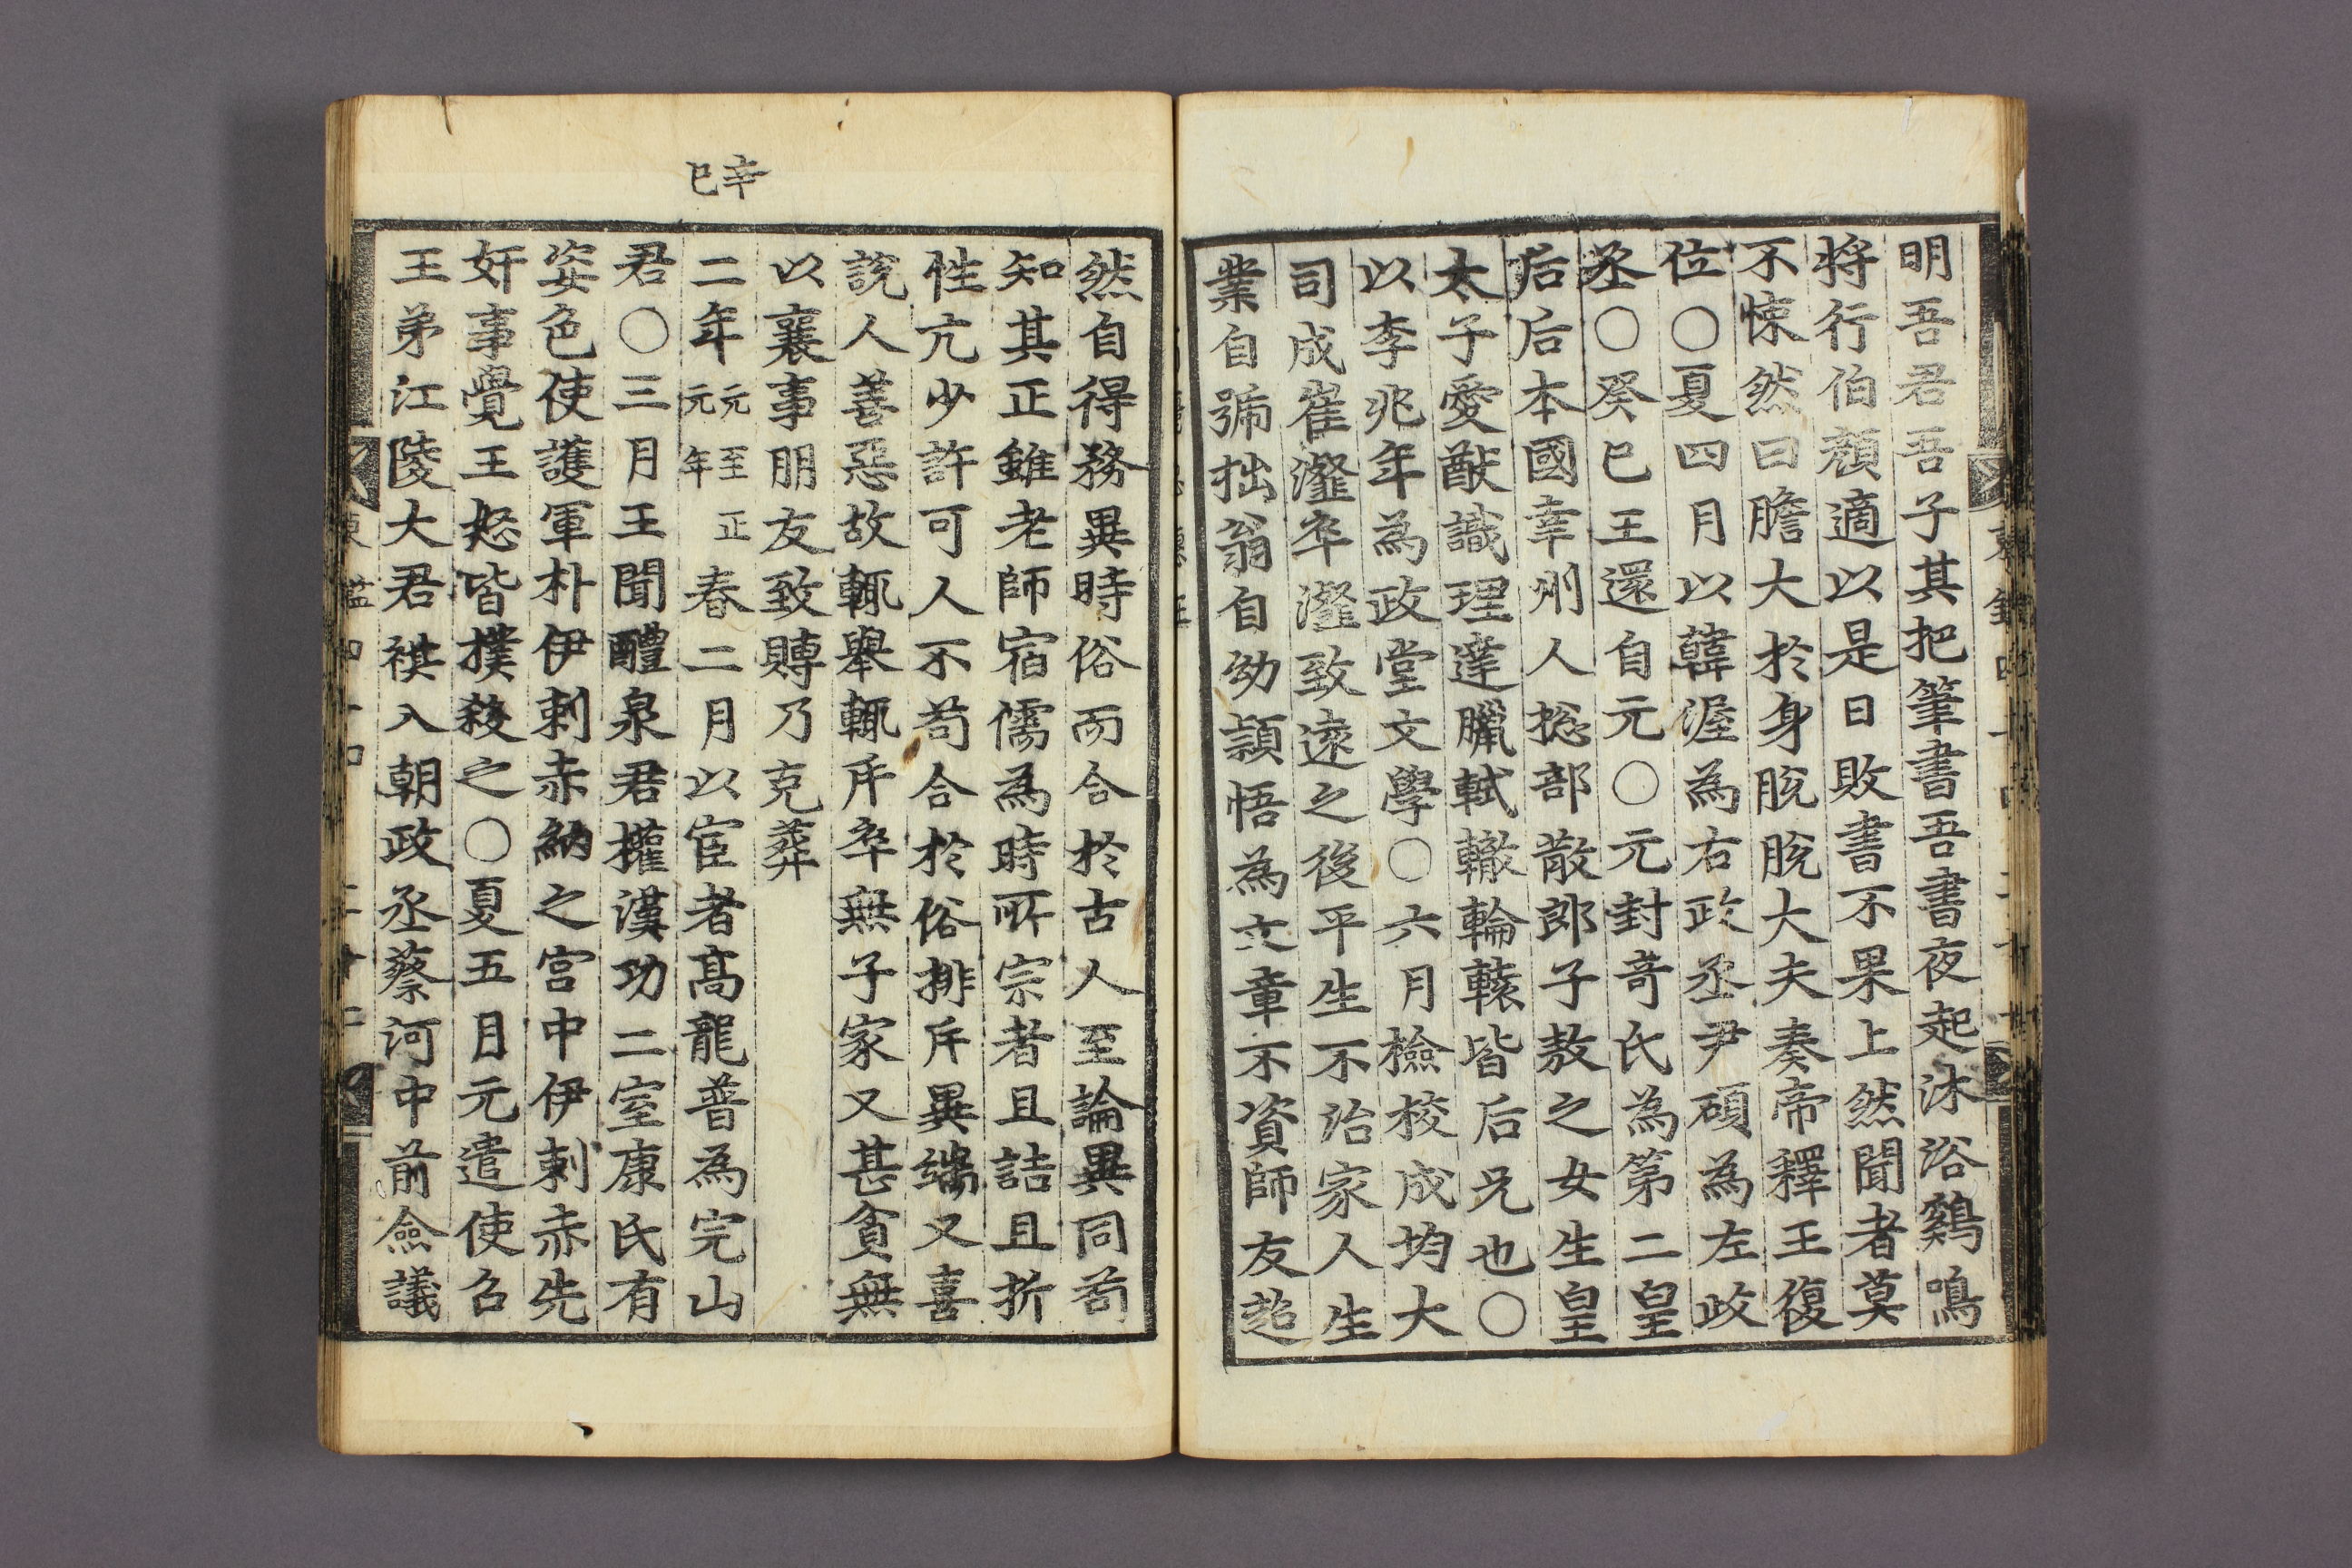 明吾君吾吾子其把筆書吾書夜起沐浴鷄鳴
將行伯顔適以是日敗書不果上然聞者莫
不悚然曰膽大於身脫脫大夫奏帝釋王復
位○夏四月以韓渥為右政丞尹碩為左政
丞○癸巳王還自元○元封竒氏為第二皇
后后本國幸州人捴部散郎子敖之女生皇
太子愛猷識理達臘軾轍輪轅皆后兄也○
以李兆年為政堂文學○六月檢校成均大
司成崔瀣卒瀣致遠之後平生不治家人生
業自號拙翁自幼頴悟為文章不資師友超
辛巳
然自得務異時俗而合於古人至論異同苟
知其正雖老師宿儒為時所宗者且詰且折
性亢少許可人不苟合於俗排斥異端又喜
說人善惡故輒舉輒斥卒無子家又甚貧無
以襄事朋友致賻乃克葬
二年元至正元年春二月以宦者高龍普為完山
君○三月王聞醴泉君權漢功二室康氏有
姿色使護軍朴伊剌赤納之宮中伊剌赤先
奸事覺王怒皆撲殺之○夏五月元遣使召
王弟江陵大君祺入朝政丞蔡河中前僉議